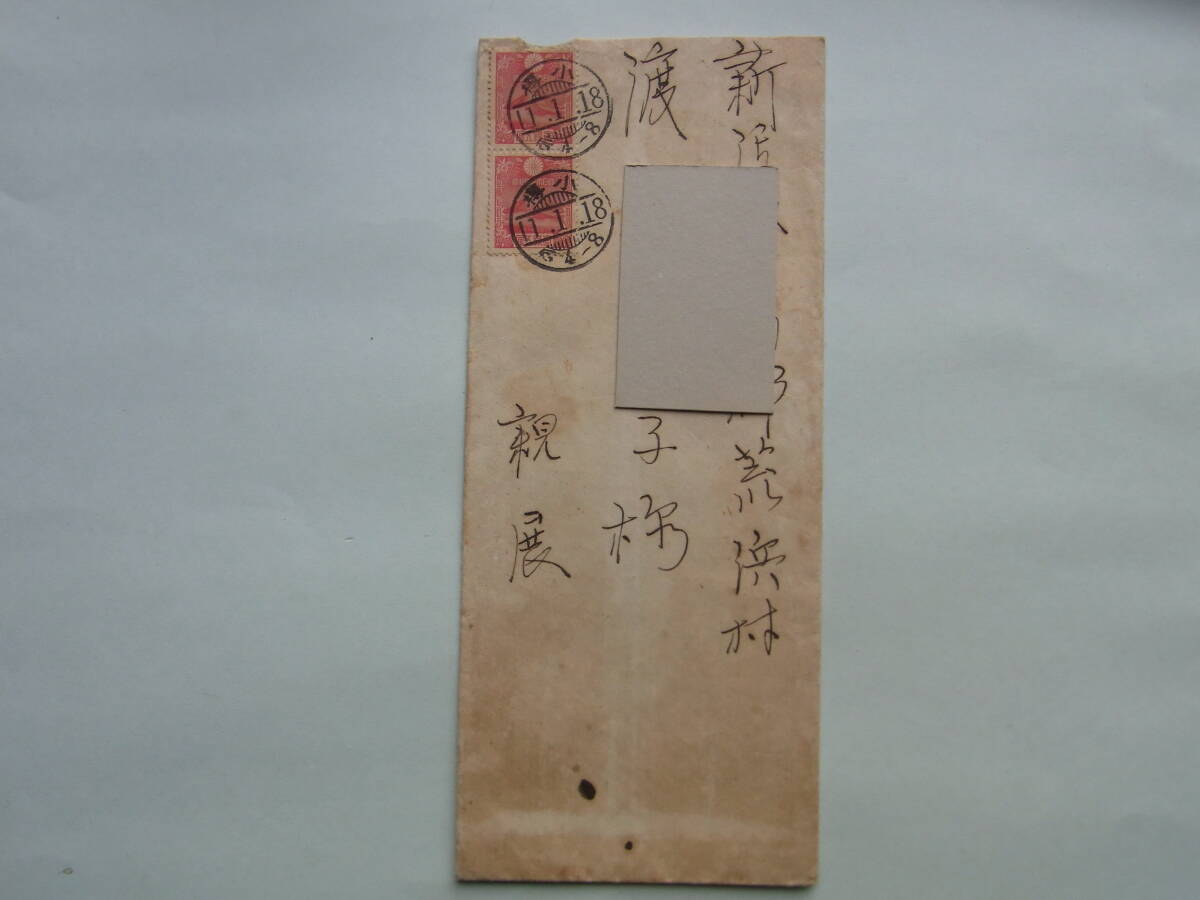 新潟
荒浜村
渡
子様
親展
小樽
11.1.18
后4-8
小樽
11.1.18
后4-8